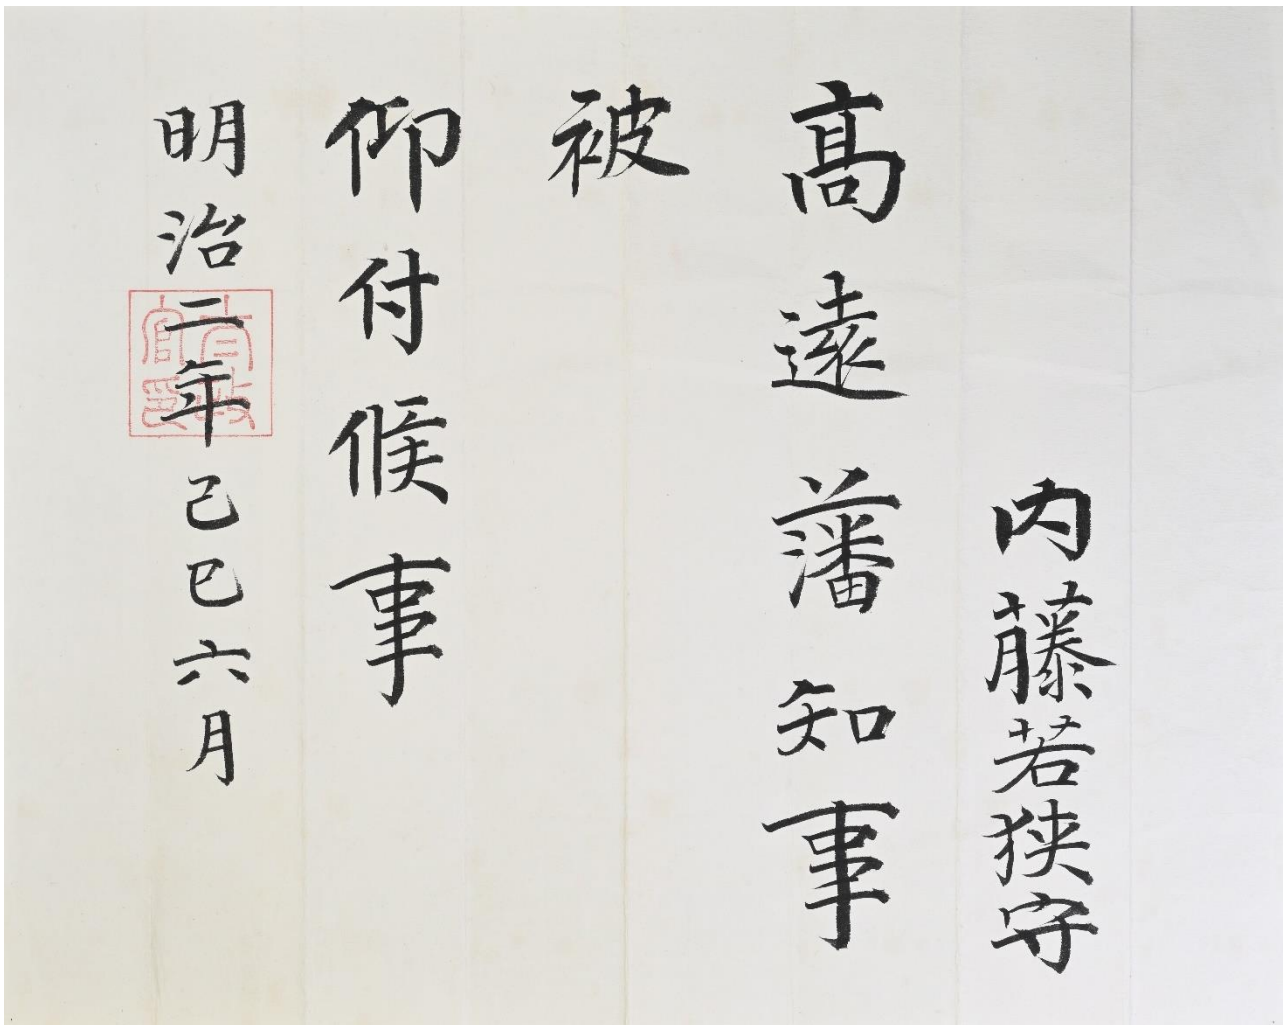 内藤若狭守
髙遠藩知事
被
仰付候事
明治二年己巳六月
行政官印